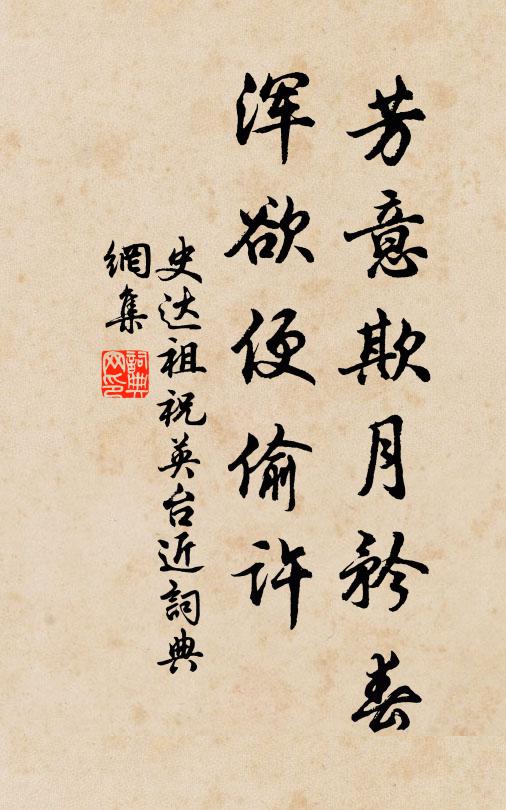 芳意欺月矜春
浑欲便偷许
史达祖祝英台近詞典
網集
詞典
网印